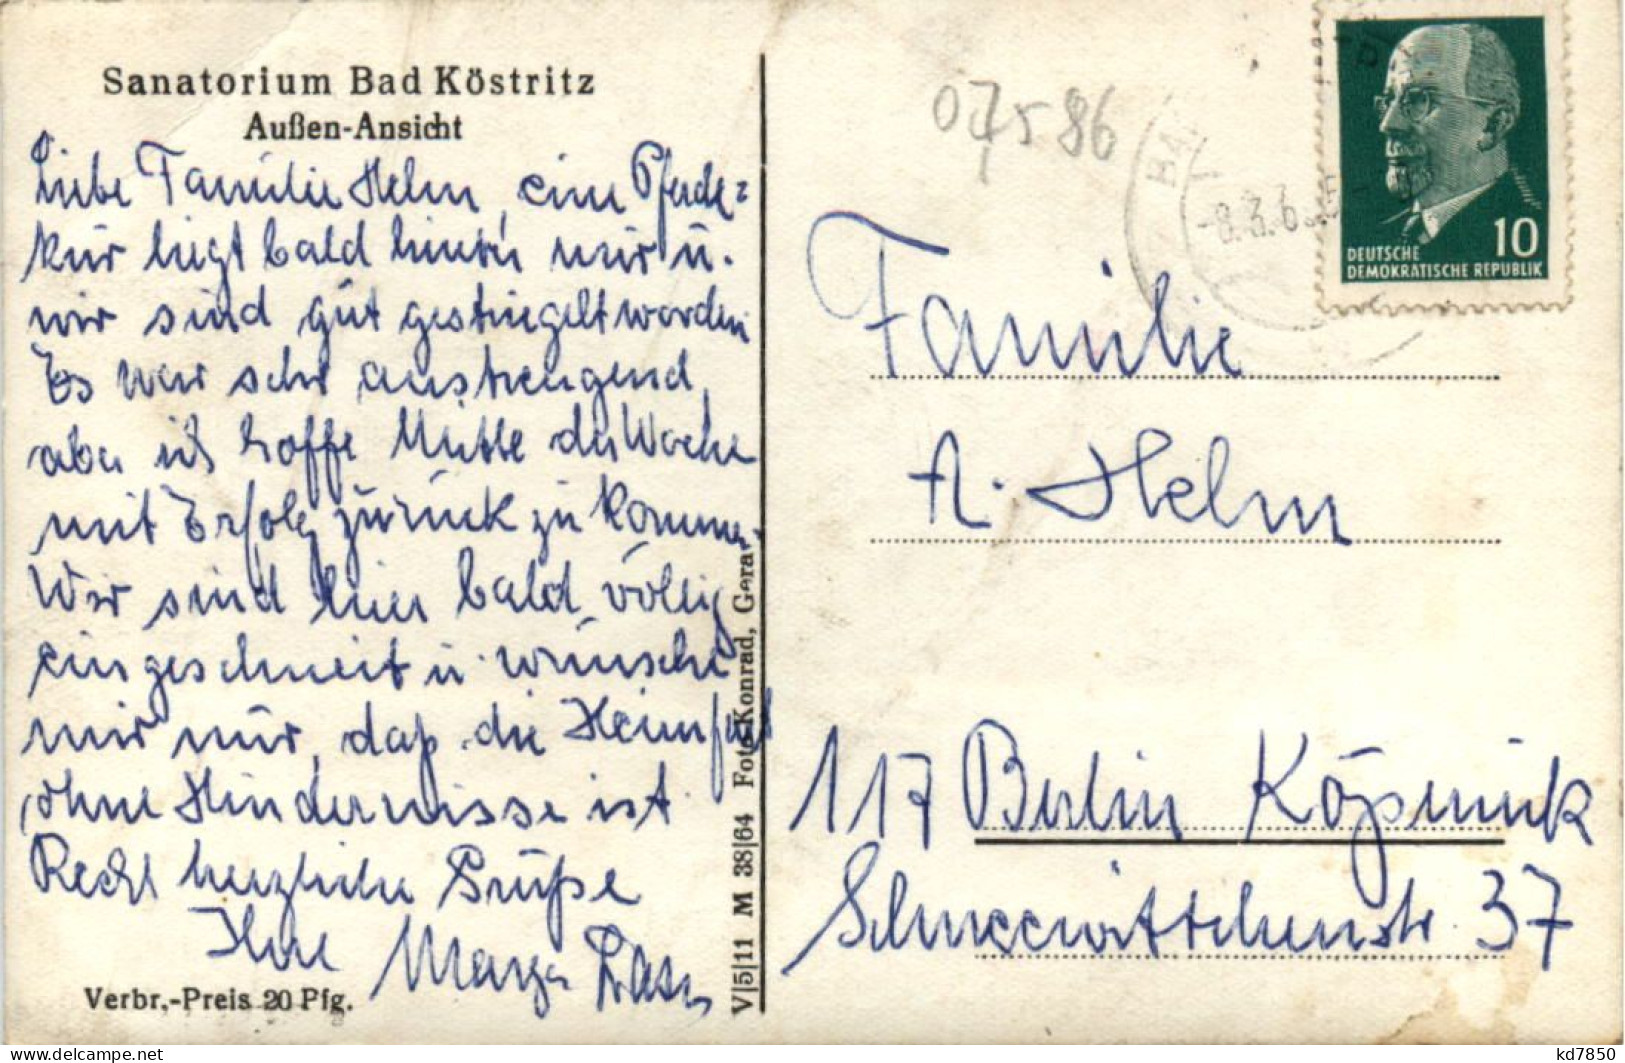 Sanatorium Bad Köstritz
Außen-Ansicht
Liebe Familie Helm, eine Pferde=
kur liegt bald hinter mir u.
wir sind gut gestriegelt worden
Es war sehr anstrengend,
aber ich hoffe Mitte der Woche
mit Erfolg zurück zu kommen.
Wir sind hier bald völlig
eingeschneit u. wünsche
mir nur, daß die Heimfahrt
ohne Hindernisse ist
Recht herzliche Grüße
Ihre Marga
Verbr.-Preis 20 Pfg.
V|5|11 M 38|64 Foto-Konrad, Gera
07586
-8.3.6
DEUTSCHE
DEMOKRATISCHE REPUBLIK
10
Familie
A. Helm
117 Berlin Köpenick
Schneewittchenstr. 37
kd7850